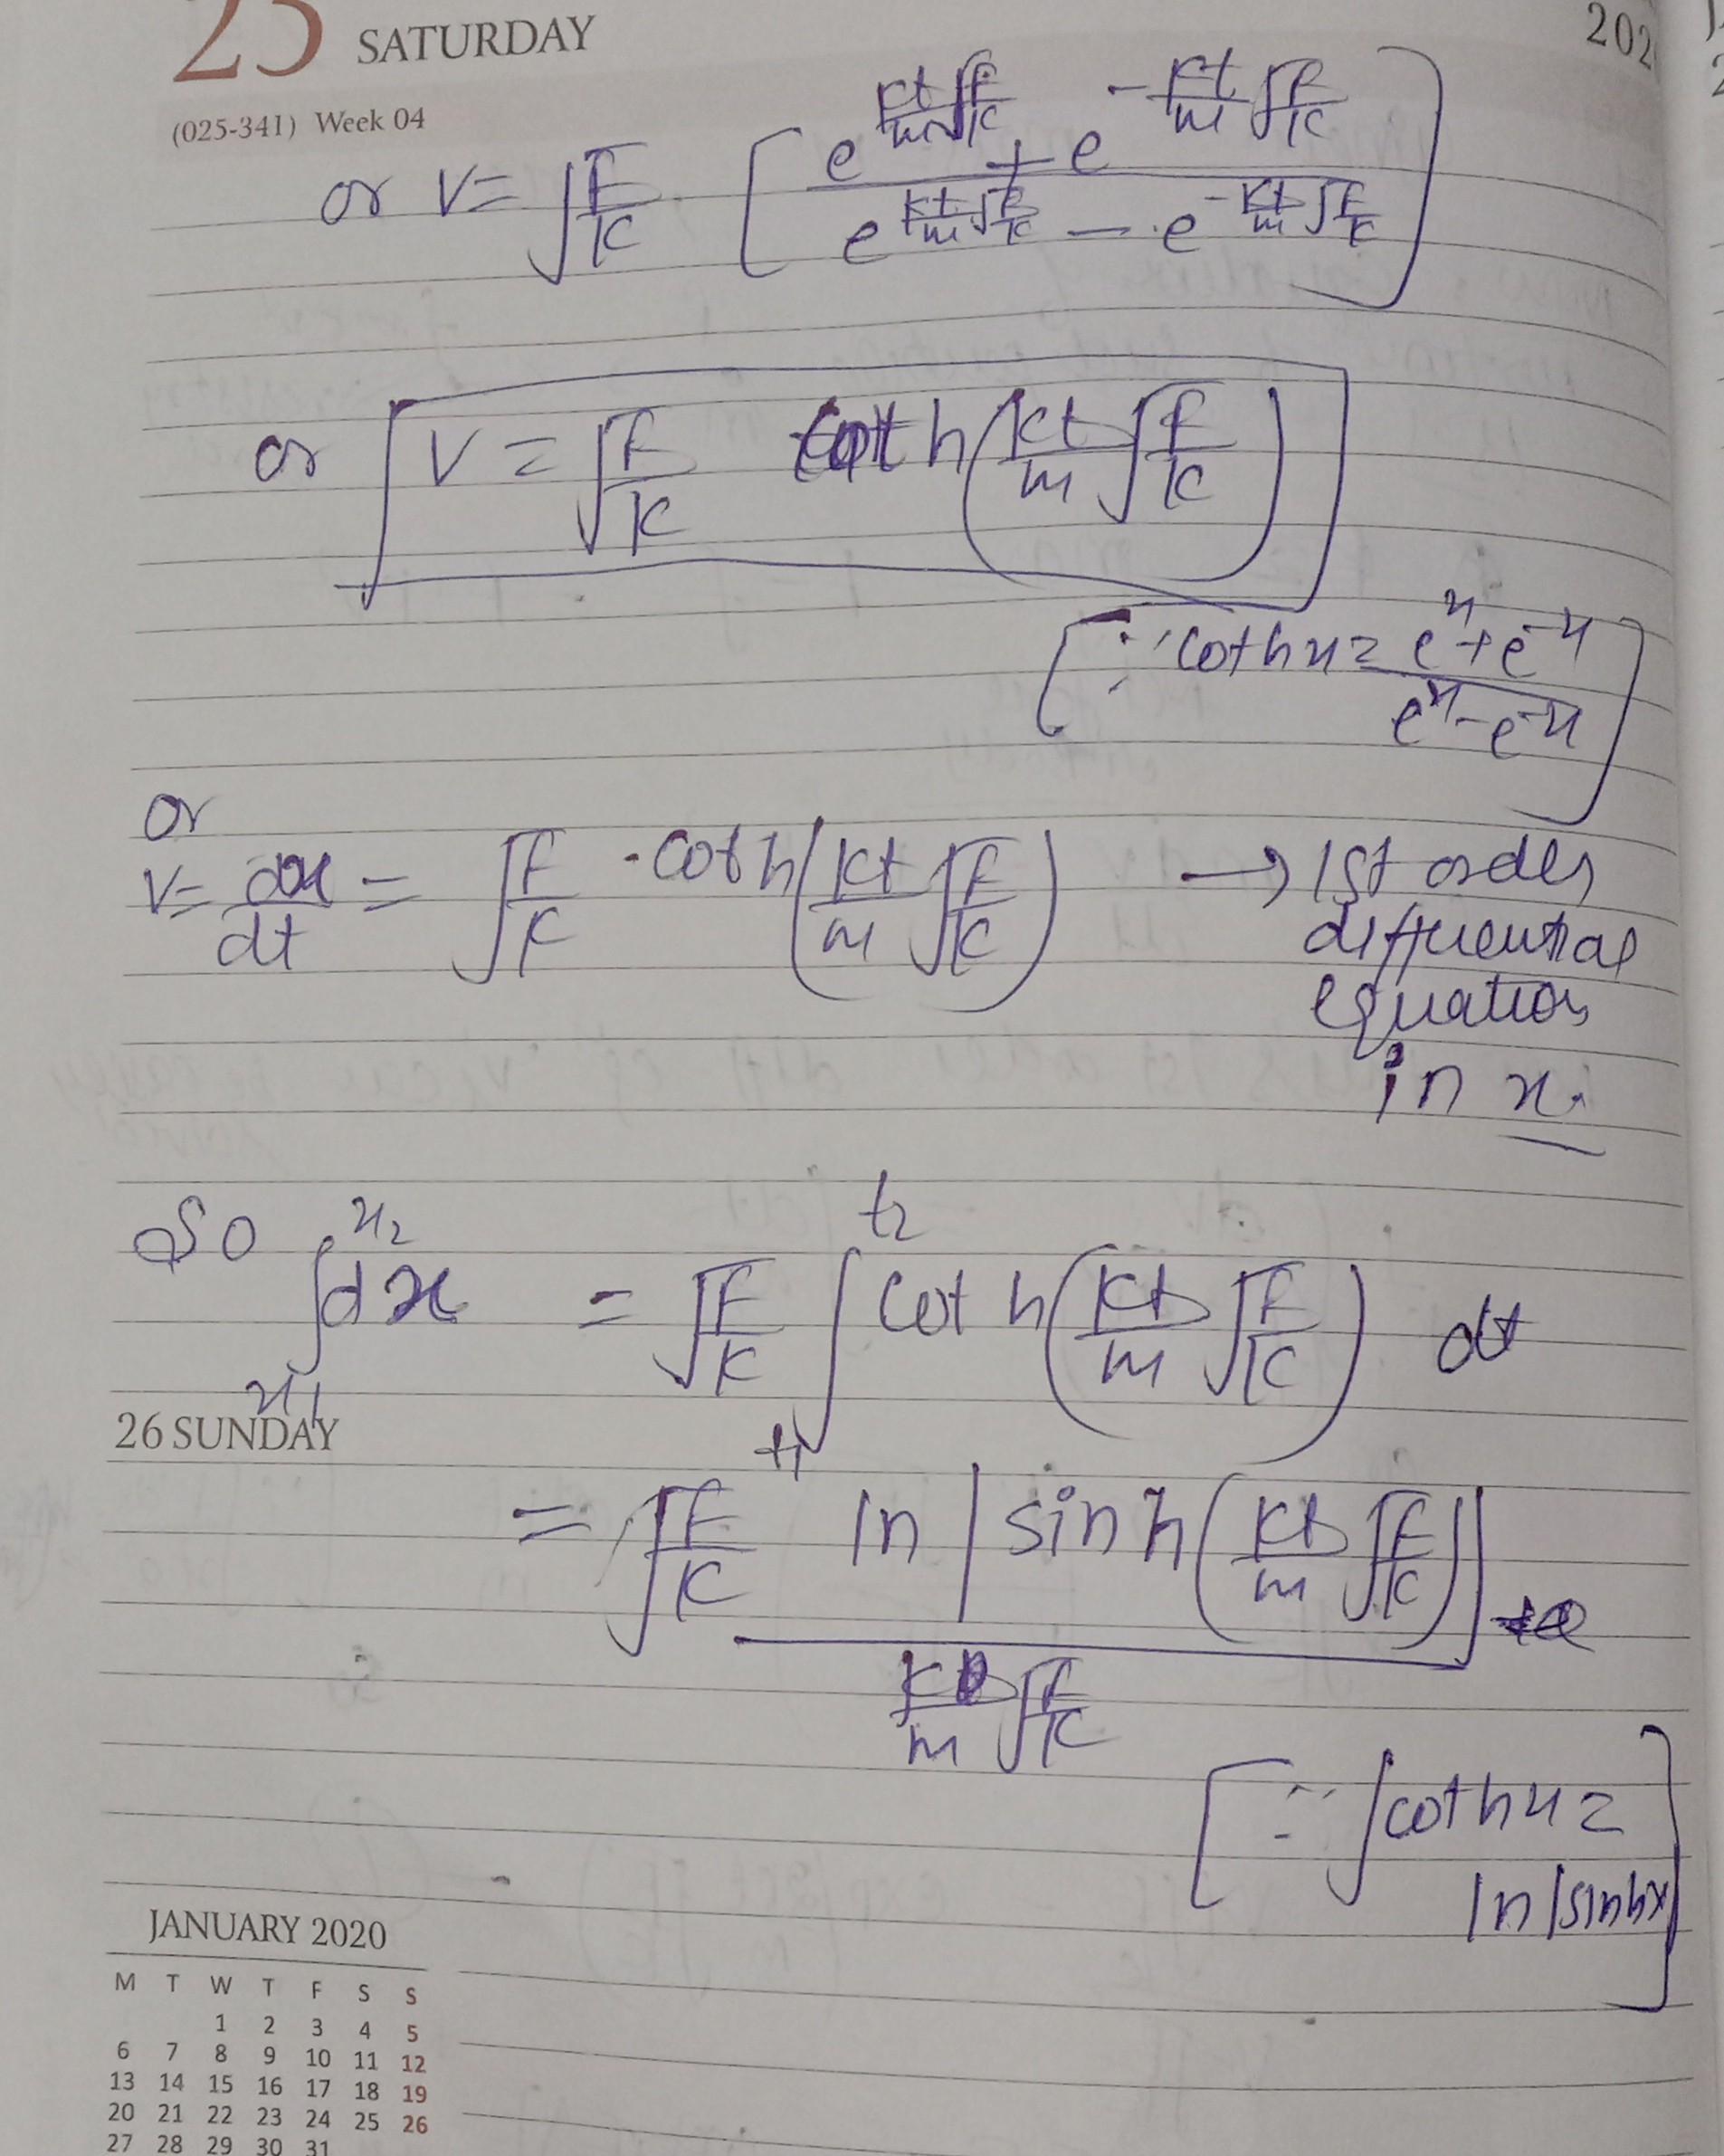 25 SATURDAY
202
(025-341) Week 04
or V = √(F/K) [ (e^(Kt/m √(F/K)) + e^(-Kt/m √(F/K))) / (e^(Kt/m √(F/K)) - e^(-Kt/m √(F/K))) ]
or V = √(F/K) coth (Kt/m √(F/K))
[∵ coth x = (e^x + e^-x) / (e^x - e^-x)]
or
V = dx/dt = √(F/K) · coth (Kt/m √(F/K)) → 1st order
differential
equation
in x.
So ∫_{x1}^{x2} dx = √(F/K) ∫_{t1}^{t2} coth (Kt/m √(F/K)) dt
26 SUNDAY
= √(F/K) ln |sinh (Kt/m √(F/K))| / (K/m √(F/K))
[∵ ∫coth x =
ln |sinhx]
JANUARY 2020
M T W T F S S
1 2 3 4 5
6 7 8 9 10 11 12
13 14 15 16 17 18 19
20 21 22 23 24 25 26
27 28 29 30 31